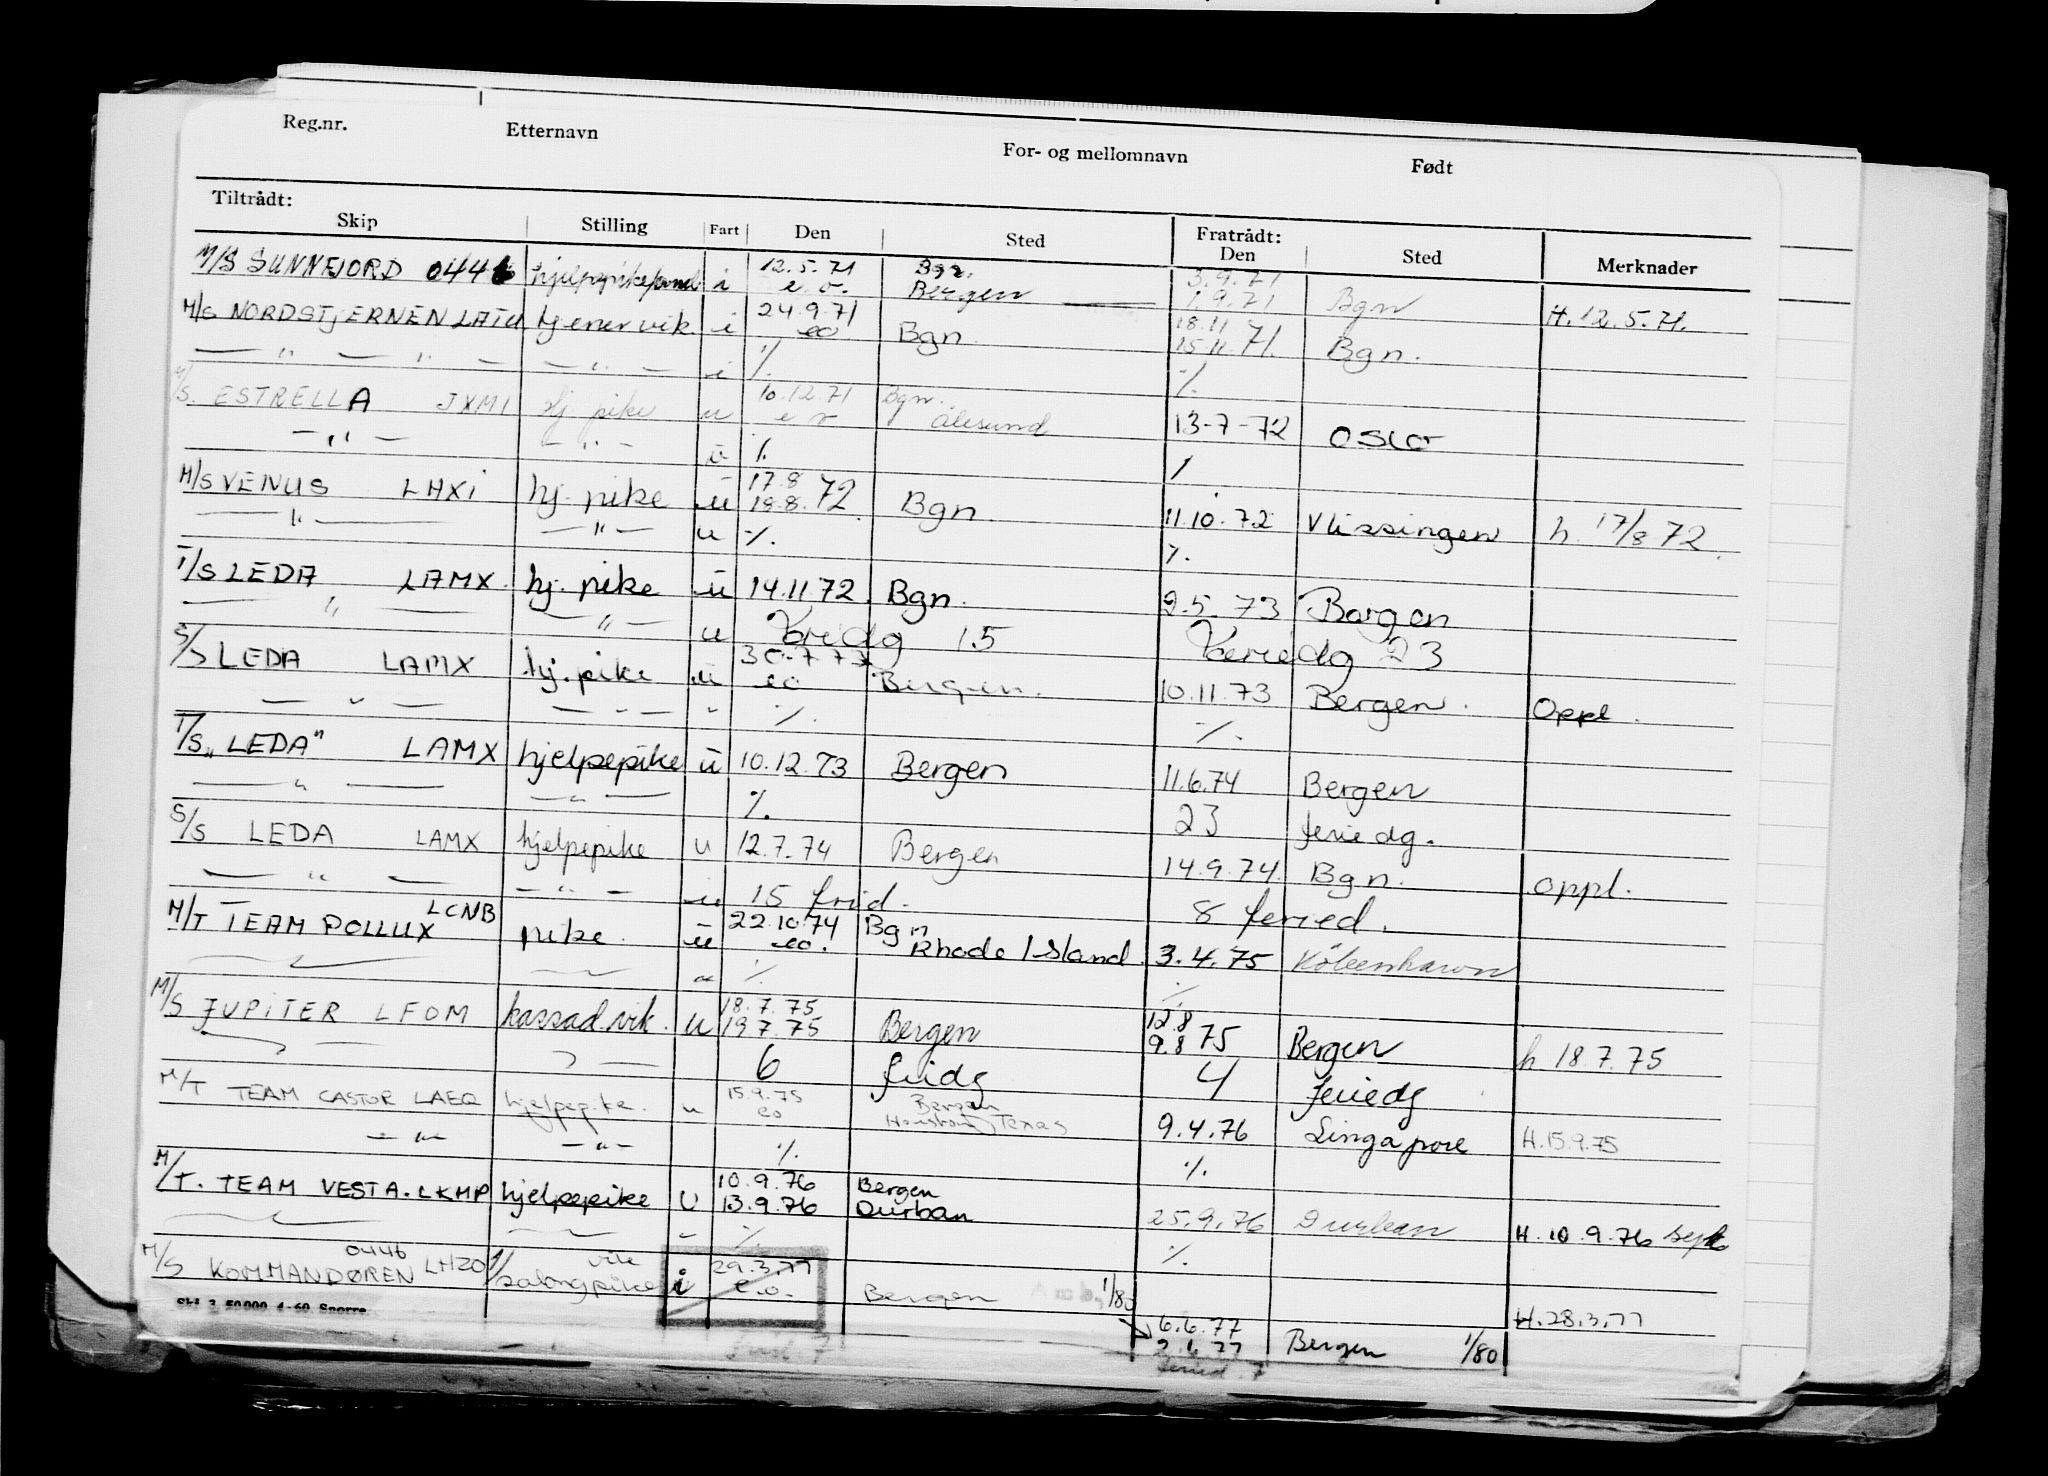 Reg.nr. Etternavn For- og mellomnavn Født
Tiltrådt: Fratrådt:
Skip Stilling Fart Den Sted Den Sted Merknader
M/S SUNNFJORD 0446 i 12.5.71 e.o. Bgn. Bergen 3.9.71 1.9.71 Bgn H. 12.5.71.
M/S NORDSTJERNEN LATU tjener vik i 24.9.71 eo Bgn 18.11 15.11.71. Bgn.
— " — " — — " — i %. %.
M/S. ESTRELLA JXMI hj. pike u 10.12.71 e o Bgn. Ålesund 13-7-72 OSLO
— " — — " — u %.
M/S VENUS LHXI hj. pike u 17.8 18.8.72 Bgn. 11.10.72 Vlissingen h. 17/8 72.
— " — — " — u %. %.
T/S LEDA LAMX. hj. pike u 14.11.72 Bgn. 2.5.73 Bergen
— " — — " — u 15 Feriedg 23
S/S LEDA LAMX hj. pike u 30.7.73 eo Bergen. 10.11.73 Bergen. Oppl.
— " — — " — " %. %.
T/S "LEDA" LAMX hjelpepike u 10.12.73 Bergen 11.6.74 Bergen
— " — — " — %. 23 feriedg.
S/S LEDA LAMX hjelpepike u 12.7.74 Bergen 14.9.74 Bgn. oppl.
— " — — " — u 15 frid. 8 feried.
M/T TEAM POLLUX LCNB pike. u 22.10.74 eo. Bgn Rhode Island 3.4.75 København
u % %
M/S JUPITER LFOM kassad.vik. u 18.7.75 19.7.75 Bergen 12.8 9.8 75 Bergen h 18.7.75
6 fridg 4 feriedg
M/T TEAM CASTOR LAEQ hjelpepike. u 15.9.75 eo Bergen Houston Texas 9.4.76 Singapore H.15.9.75
— " — — " — %. %.
M/T. TEAM VESTA. LKMP hjelpepike u 10.9.76 13.9.76 Bergen Durban 25.9.76 Durban H. 10.9.76
" %. %.
M/S KOMMANDØREN 0446 LHZO vik salongpike i 29.3.77 e.o. Bergen 1/80 H.28.3.77
6.6.77 Bergen 1/80
Skl. 3. 50000. 4-69. Sporre
feried. 7